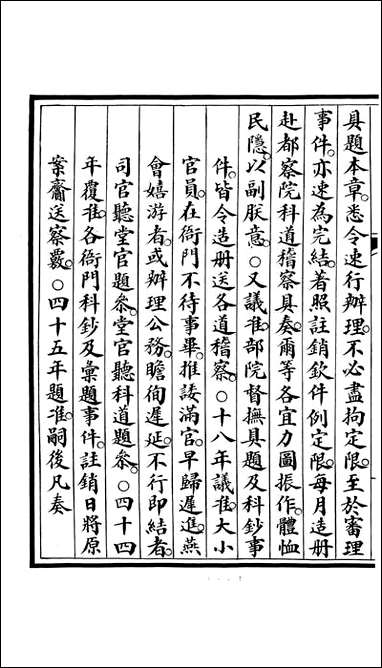 具題本章。悉令速行辦理。不必盡拘定限。至於審理
事件。亦速為完結。著照註銷欽件例定限。每月造册
赴都察院科道稽察具奏。爾等各宜力圖振作。體恤
民隱。以副朕意。○又議准。部院督撫具題及科鈔事
件。皆令造册送各道稽察。○十八年議准。大小
官員。在衙門不待事畢。推諉滿官。早歸遲進。燕
會嬉游者。或辦理公務。瞻徇遲延。不行即結者。
司官聽堂官題參。堂官聽科道題參。○四十四
年覆准。各衙門科鈔及彙題事件。註銷日將原
案齎送察覈。○四十五年題准。嗣後凡奏